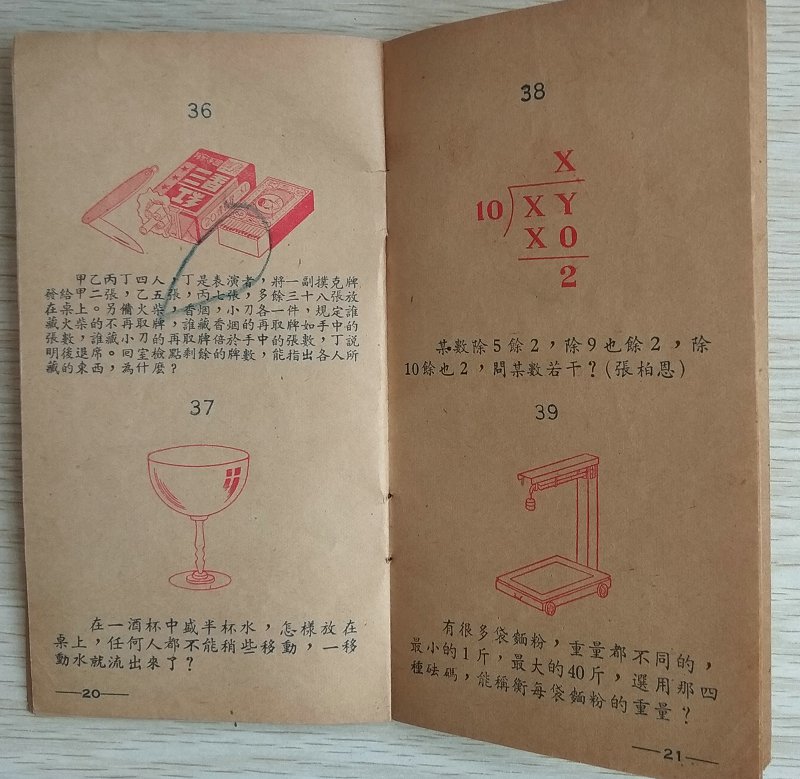 36
甲乙丙丁四人，丁是表演者，將一副撲克牌
發給甲二張，乙五張，丙七張，多餘三十八張放
在桌上。另備火柴，香烟，小刀各一件，規定誰
藏火柴的不再取牌，誰藏香烟的再取牌如手中的
張數，誰藏小刀的再取牌倍於手中的張數，丁說
明後退席。回室檢點剩餘的牌數，能指出各人所
藏的東西，為什麼？
37
在一酒杯中盛半杯水，怎樣放在
桌上，任何人都不能稍些移動，一移
動水就流出來了？
20
38
X
10 X Y
X 0
2
某數除5餘2，除9也餘2，除
10餘也2，問某數若干？(張柏恩)
39
有很多袋麵粉，重量都不同的，
最小的1斤，最大的40斤，選用那四
種砝碼，能稱衡每袋麵粉的重量？
21